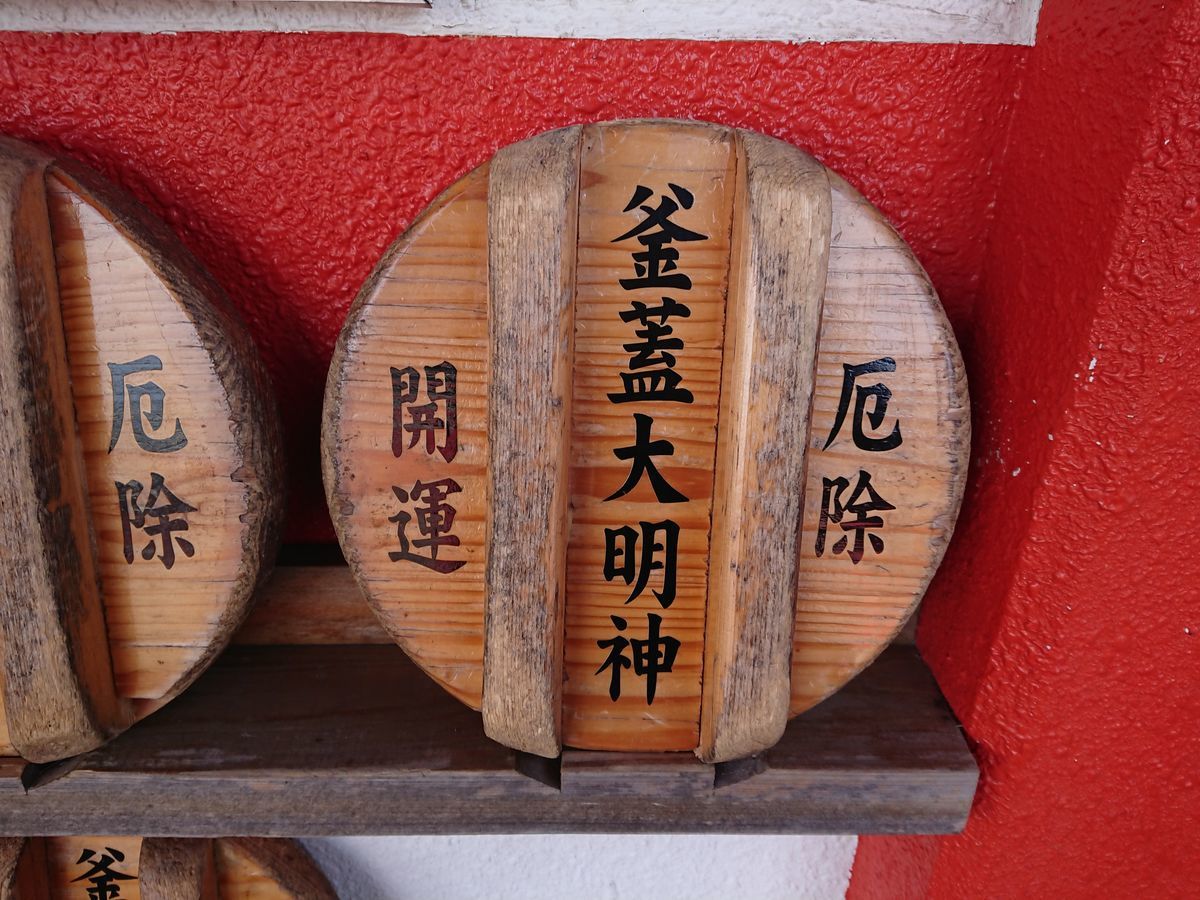 厄除
釜蓋大明神
開運
厄除
釜